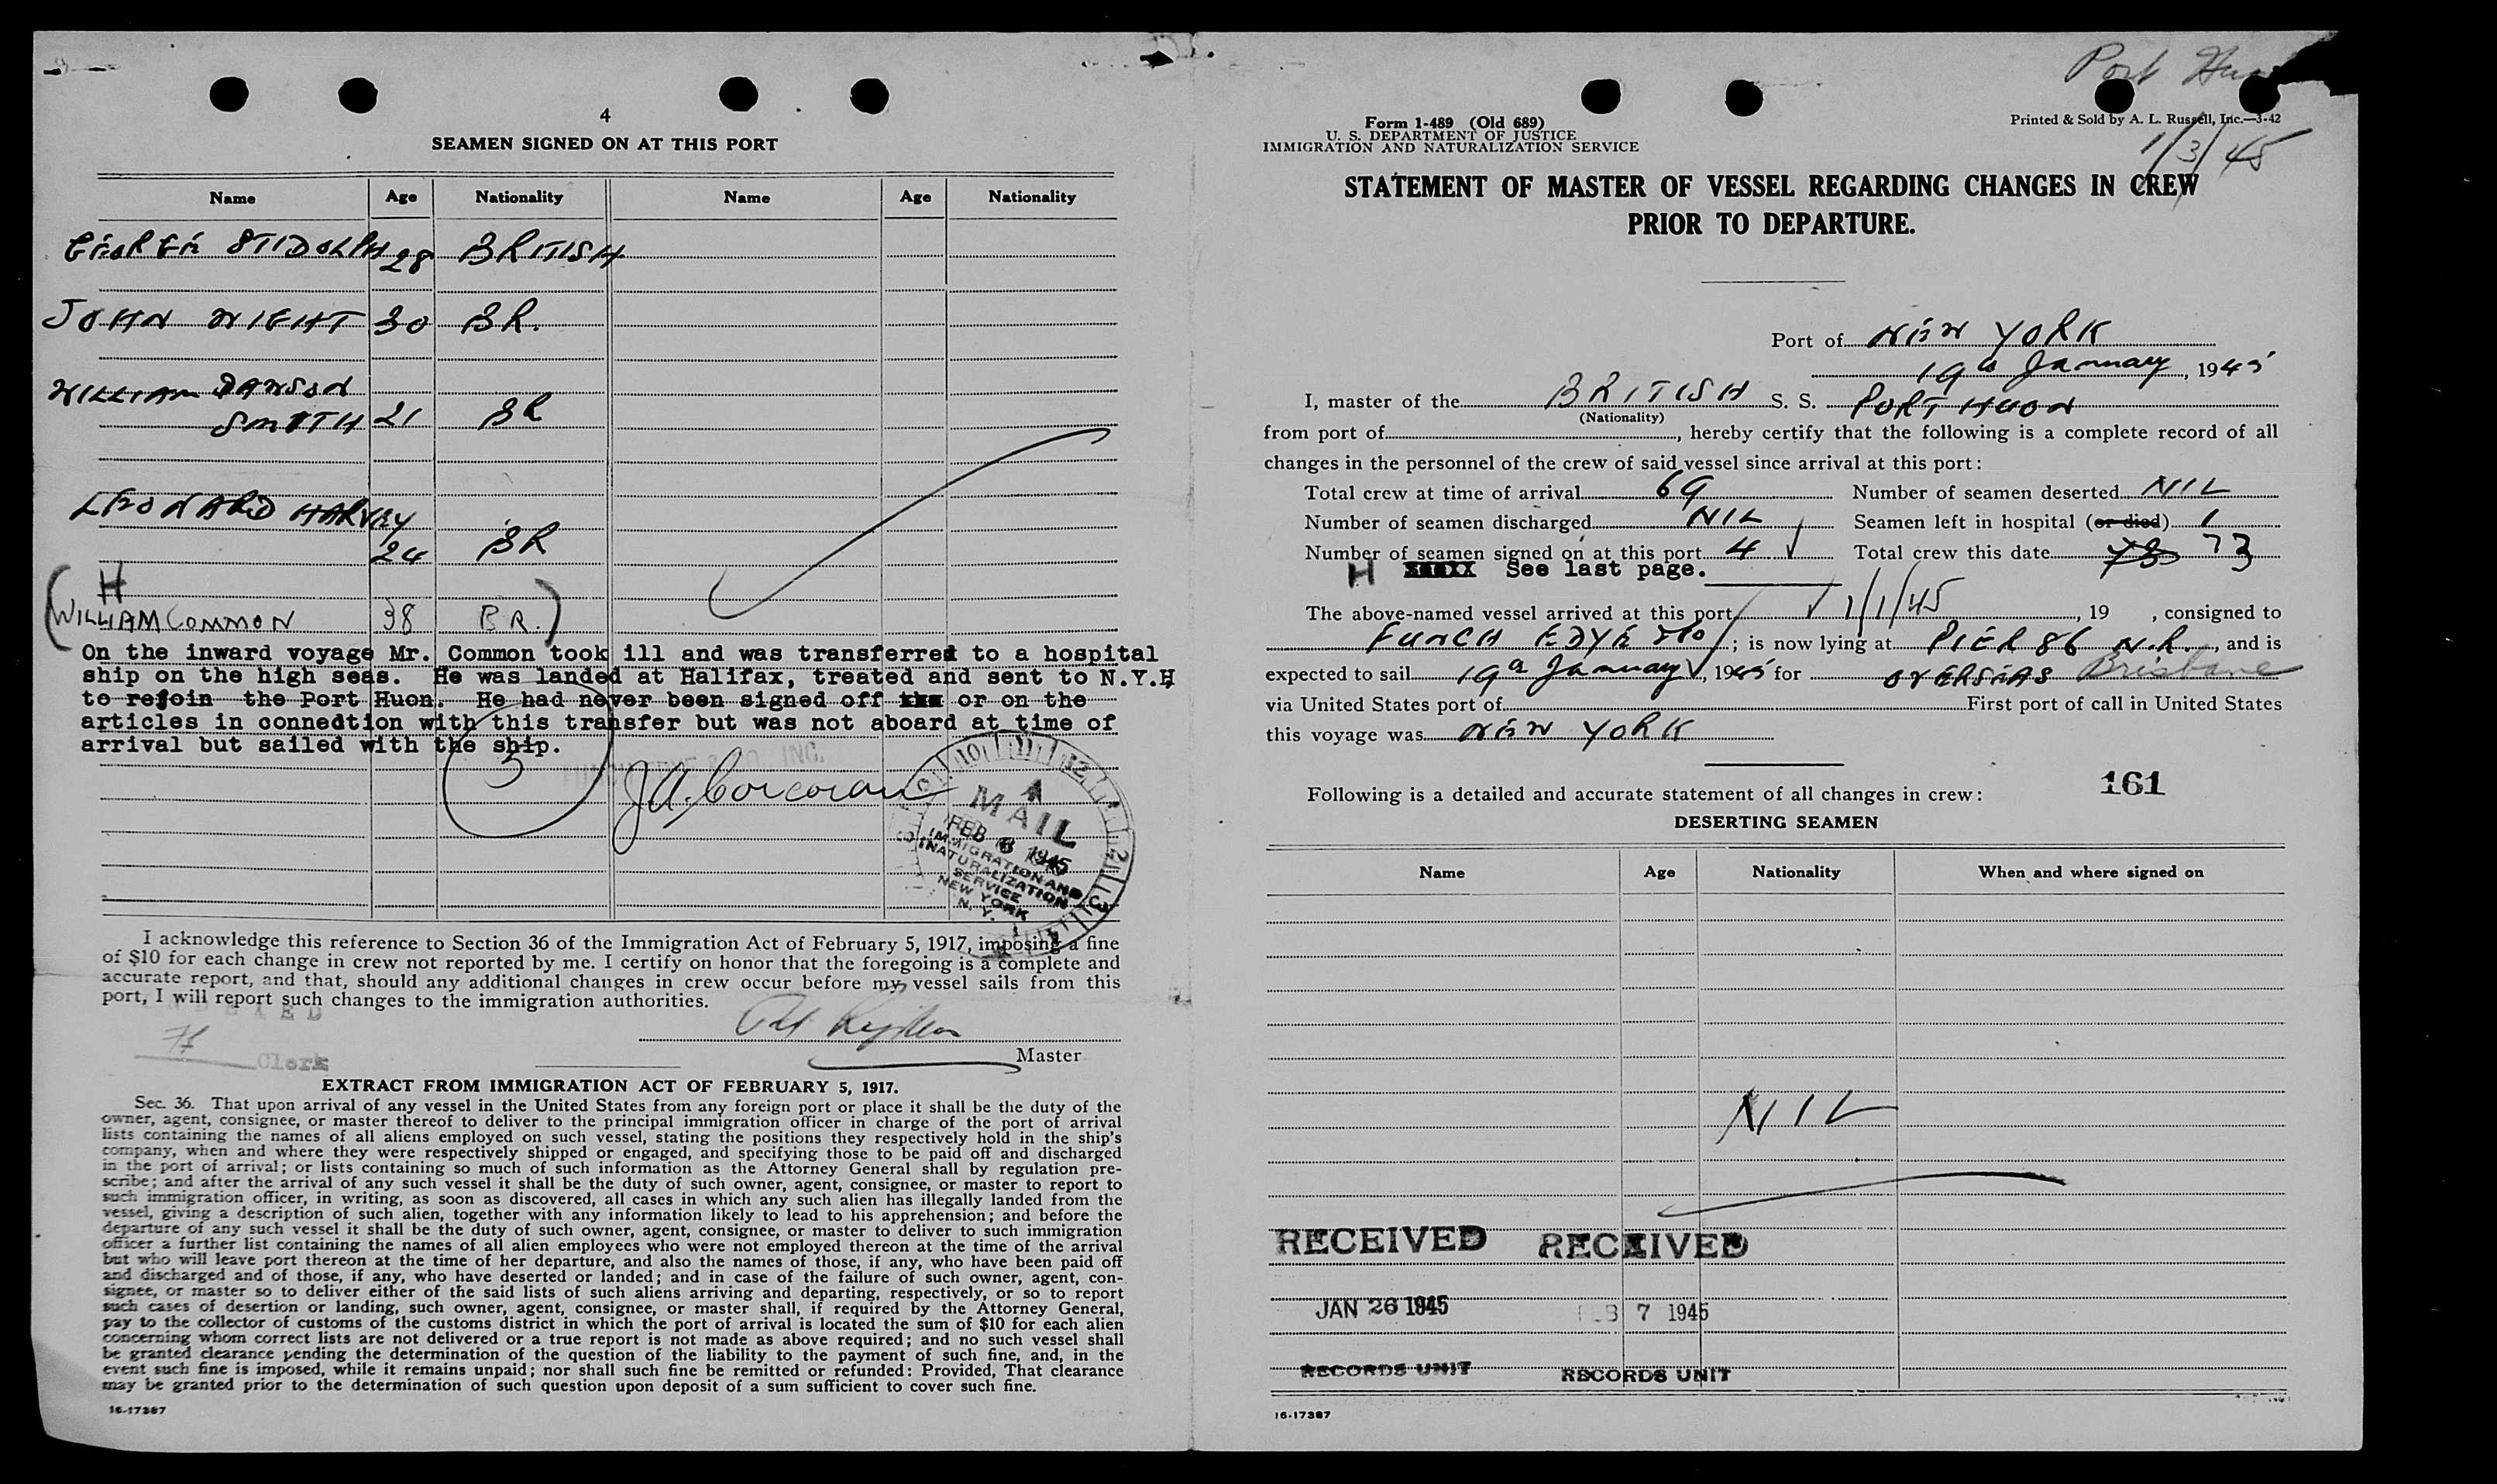 4
SEAMEN SIGNED ON AT THIS PORT
Name Age Nationality Name Age Nationality
GEORGE STIDOLPH 28 BRITISH
JOHN WIGHT 30 BR.
WILLIAM DAWSON
SMITH 21 BR
LEONARD HARVEY
24 BR
H
(WILLIAM COMMON 38 BR.)
On the inward voyage Mr. Common took ill and was transferred to a hospital
ship on the high seas. He was landed at Halifax, treated and sent to N.Y.H
to rejoin the Port Huon. He had never been signed off or on the
articles in connedtion with this transfer but was not aboard at time of
arrival but sailed with the ship.
5
J.A. Corcoran
MAIL
FEB 6 1945
IMMIGRATION AND
NATURALIZATION
SERVICE
NEW YORK
N. Y.
I acknowledge this reference to Section 36 of the Immigration Act of February 5, 1917, imposing a fine
of $10 for each change in crew not reported by me. I certify on honor that the foregoing is a complete and
accurate report, and that, should any additional changes in crew occur before my vessel sails from this
port, I will report such changes to the immigration authorities.
INDEXED
Clerk
Master
EXTRACT FROM IMMIGRATION ACT OF FEBRUARY 5, 1917.
Sec. 36. That upon arrival of any vessel in the United States from any foreign port or place it shall be the duty of the
owner, agent, consignee, or master thereof to deliver to the principal immigration officer in charge of the port of arrival
lists containing the names of all aliens employed on such vessel, stating the positions they respectively hold in the ship's
company, when and where they were respectively shipped or engaged, and specifying those to be paid off and discharged
in the port of arrival; or lists containing so much of such information as the Attorney General shall by regulation pre-
scribe; and after the arrival of any such vessel it shall be the duty of such owner, agent, consignee, or master to report to
such immigration officer, in writing, as soon as discovered, all cases in which any such alien has illegally landed from the
vessel, giving a description of such alien, together with any information likely to lead to his apprehension; and before the
departure of any such vessel it shall be the duty of such owner, agent, consignee, or master to deliver to such immigration
officer a further list containing the names of all alien employees who were not employed thereon at the time of the arrival
but who will leave port thereon at the time of her departure, and also the names of those, if any, who have been paid off
and discharged and of those, if any, who have deserted or landed; and in case of the failure of such owner, agent, con-
signee, or master so to deliver either of the said lists of such aliens arriving and departing, respectively, or so to report
such cases of desertion or landing, such owner, agent, consignee, or master shall, if required by the Attorney General,
pay to the collector of customs of the customs district in which the port of arrival is located the sum of $10 for each alien
concerning whom correct lists are not delivered or a true report is not made as above required; and no such vessel shall
be granted clearance pending the determination of the question of the liability to the payment of such fine, and, in the
event such fine is imposed, while it remains unpaid; nor shall such fine be remitted or refunded: Provided, That clearance
may be granted prior to the determination of such question upon deposit of a sum sufficient to cover such fine.
16-17387
Port
Form 1-489 (Old 689)
U. S. DEPARTMENT OF JUSTICE
IMMIGRATION AND NATURALIZATION SERVICE
Printed & Sold by A. L. Russell, Inc.—3-42
1/3/45
STATEMENT OF MASTER OF VESSEL REGARDING CHANGES IN CREW
PRIOR TO DEPARTURE.
Port of NEW YORK
19th January, 1945
I, master of the BRITISH S. S. PORT HUON
(Nationality)
from port of , hereby certify that the following is a complete record of all
changes in the personnel of the crew of said vessel since arrival at this port:
Total crew at time of arrival 69 Number of seamen deserted NIL
Number of seamen discharged NIL Seamen left in hospital (or died) 1
Number of seamen signed on at this port 4 Total crew this date 73 73
H See last page.
The above-named vessel arrived at this port 1/1/45, 19 , consigned to
FUNCH EDYE &Co; is now lying at PIER 86 N.R., and is
expected to sail 19th January, 1945 for OVERSEAS Brisbane
via United States port of First port of call in United States
this voyage was NEW YORK
161
Following is a detailed and accurate statement of all changes in crew:
DESERTING SEAMEN
Name Age Nationality When and where signed on
NIL
RECEIVED RECEIVED
JAN 26 1945 FEB 7 1945
RECORDS UNIT RECORDS UNIT
16-17387